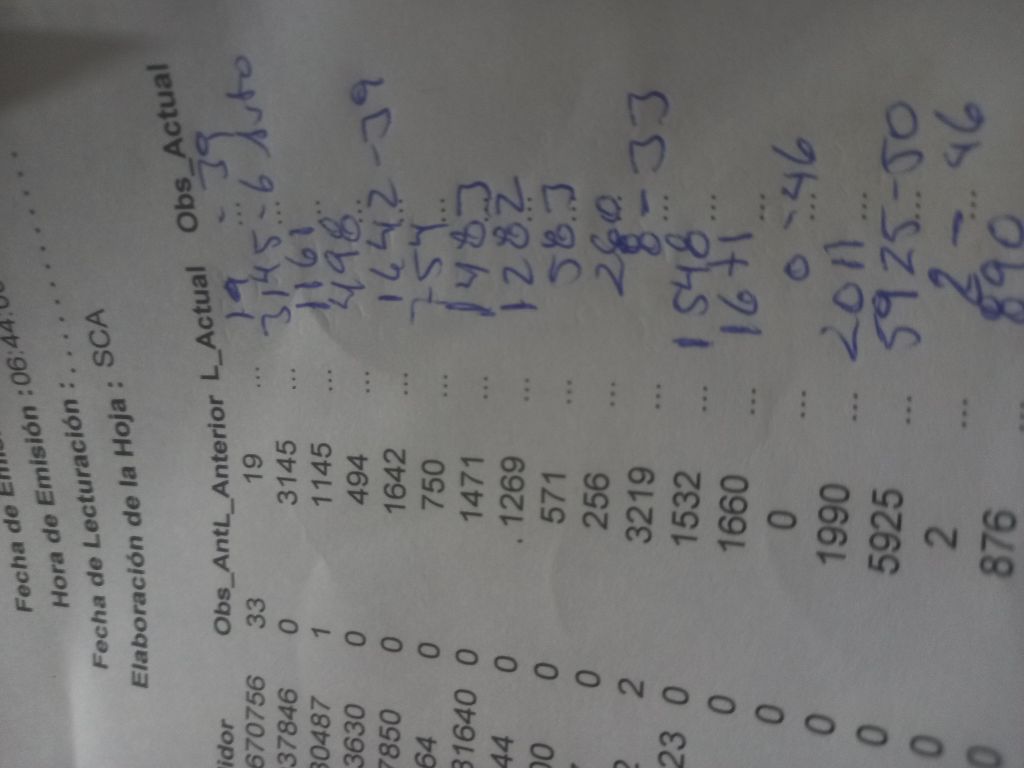 Fecha de
Hora de Emisión : 06:44:0
Fecha de Lecturación : . . . . . . . . . . . . .
Elaboración de la Hoja : SCA
idor Obs_AntL_Anterior L_Actual Obs_Actual
670756 33 19 ... 19 ... - 39
37846 0 3145 ... 3145 ... - 6
30487 1 1145 ... 1161 ...
3630 0 494 ... 498 ...
7850 0 1642 ... 1642 ... - 39
64 0 750 ... 754 ...
31640 0 1471 ... 1483 ...
44 0 1269 ... 1282 ...
00 0 571 ... 583 ...
0 256 ... 260 ...
2 2 3219 ... 8 - 33 ...
23 0 1532 ... 1548 ...
0 1660 ... 1671 ...
0 0 ... 0 - 46 ...
0 1990 ... 2011 ...
0 5925 ... 5925 - 50 ...
0 2 ... 2 - 46 ...
0 876 ... 890